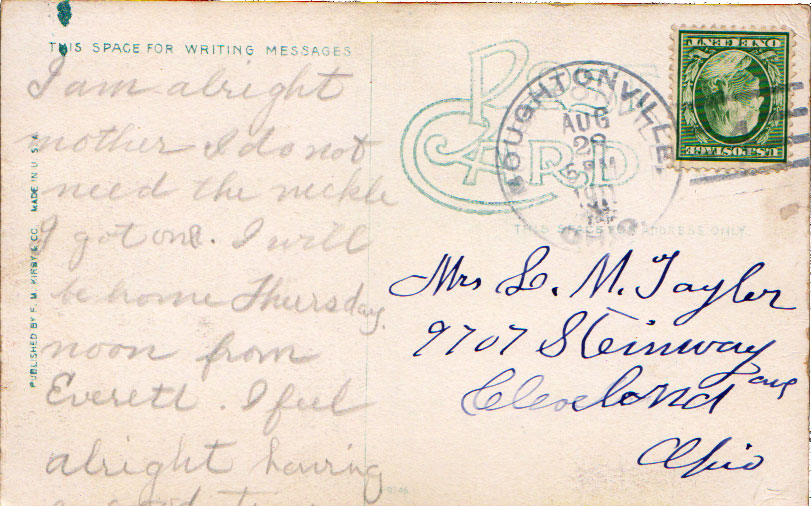 THIS SPACE FOR WRITING MESSAGES
I am alright
mother I do not
need the neckle
I got one. I will
be home Thursday
noon from
Everett. I feel
alright having
a good time
PUBLISHED BY F. M. KIRBY & CO. MADE IN U.S.A.
POST
CARD
THIS SPACE FOR ADDRESS ONLY.
BOUGHTONVILLE,
AUG
29
PM
1911
OHIO
U.S. POSTAGE
ONE CENT
Mrs L. M. Taylor
9707 Steinway
ave
Cleveland
Ohio